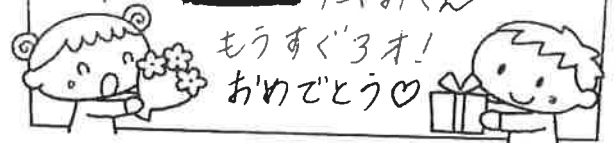 もうすぐ3才!
おめでとう♡